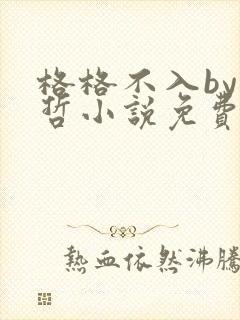 格格不入by
哲小説免費
熱血依然沸騰